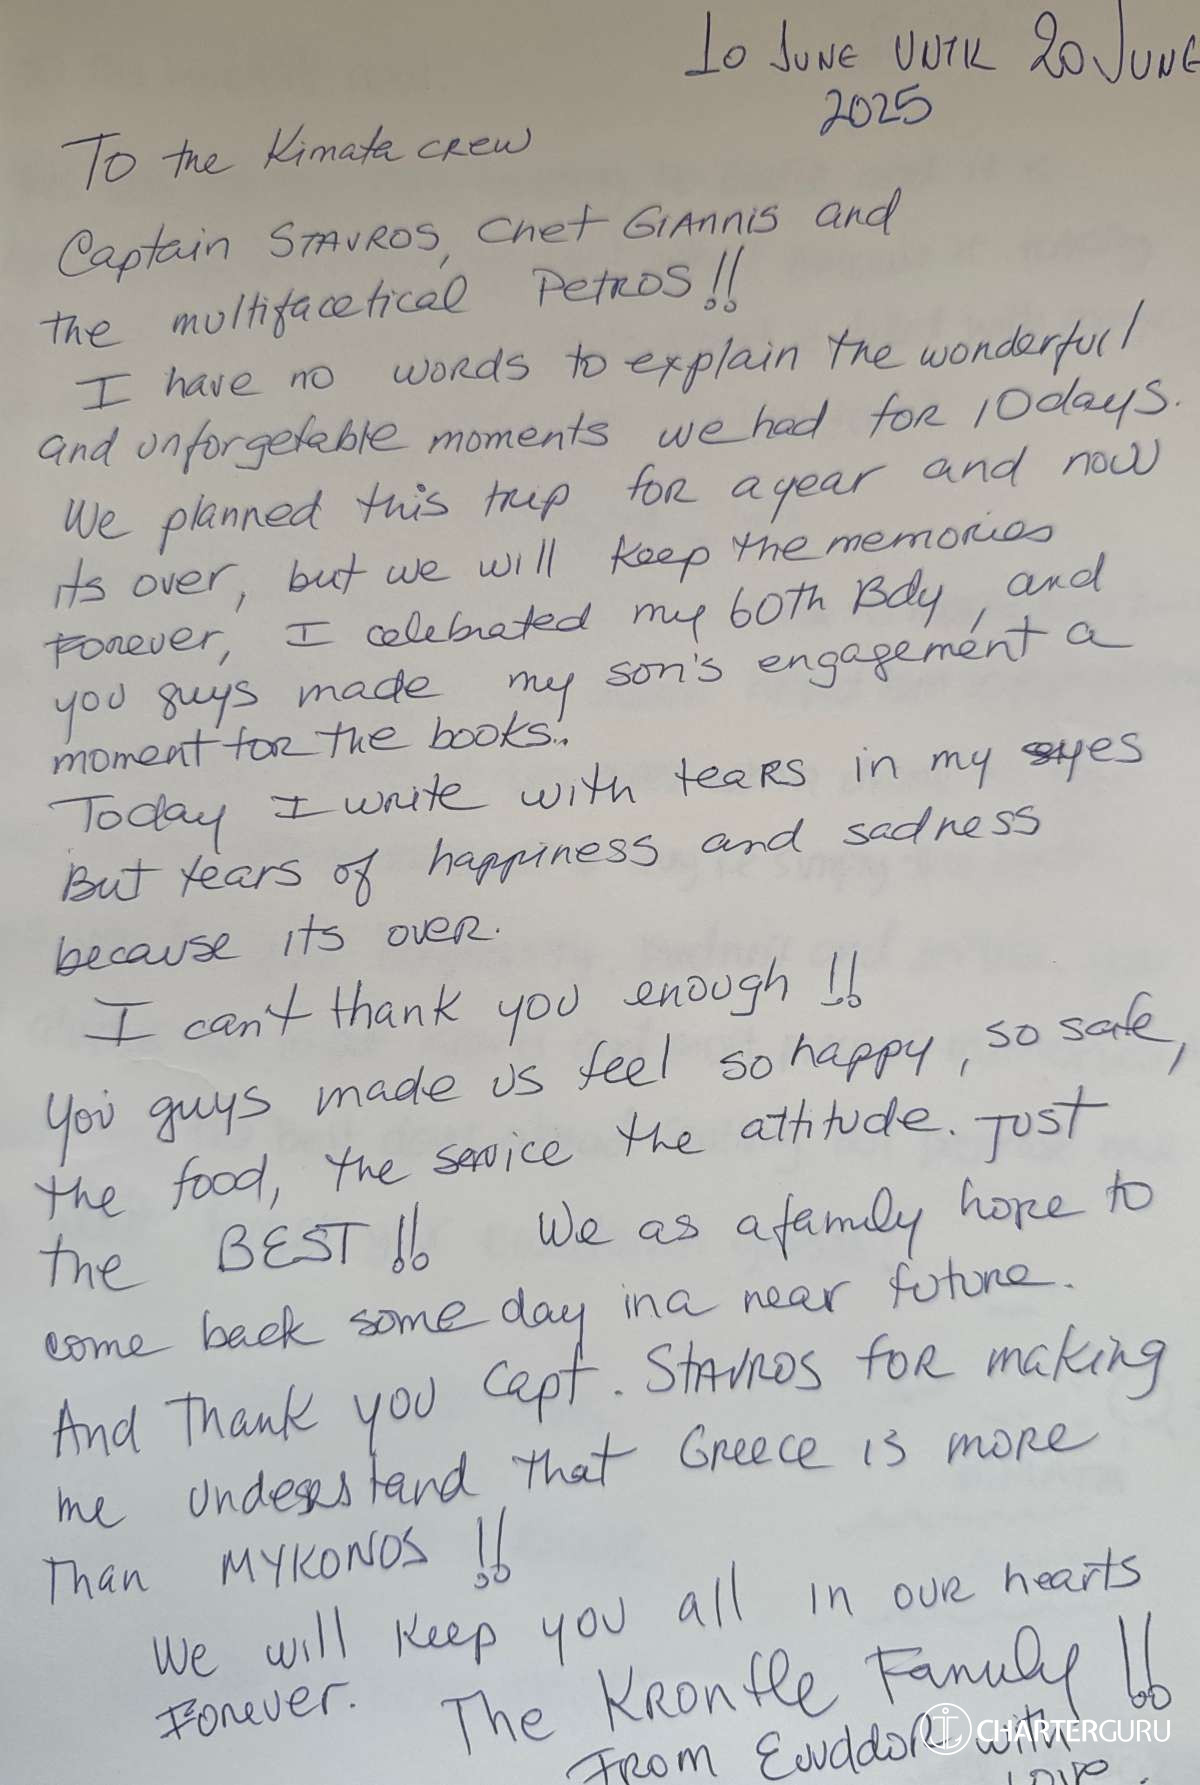 10 JUNE UNTIL 20 JUNE
2025
To the Kimata crew
Captain STAVROS, Chef GIANNIS and
the multifacetical PETROS!!
I have no words to explain the wonderful
and unforgetable moments we had for 10 days.
We planned this trip for a year and now
its over, but we will keep the memories
Forever, I celebrated my 60th Bdy, and
you guys made my son's engagement a
moment for the books..
Today I write with tears in my eyes
But tears of happiness and sadness
because its over.
I can't thank you enough!!
You guys made us feel so happy, so safe,
the food, the service the attitude. Just
the BEST!! We as a family hope to
come back some day in a near future.
And Thank you Capt. STAVROS for making
me understand that Greece is more
Than MYKONOS!!
We will keep you all in our hearts
Forever. The Family!!
From with
love.
CHARTERGURU